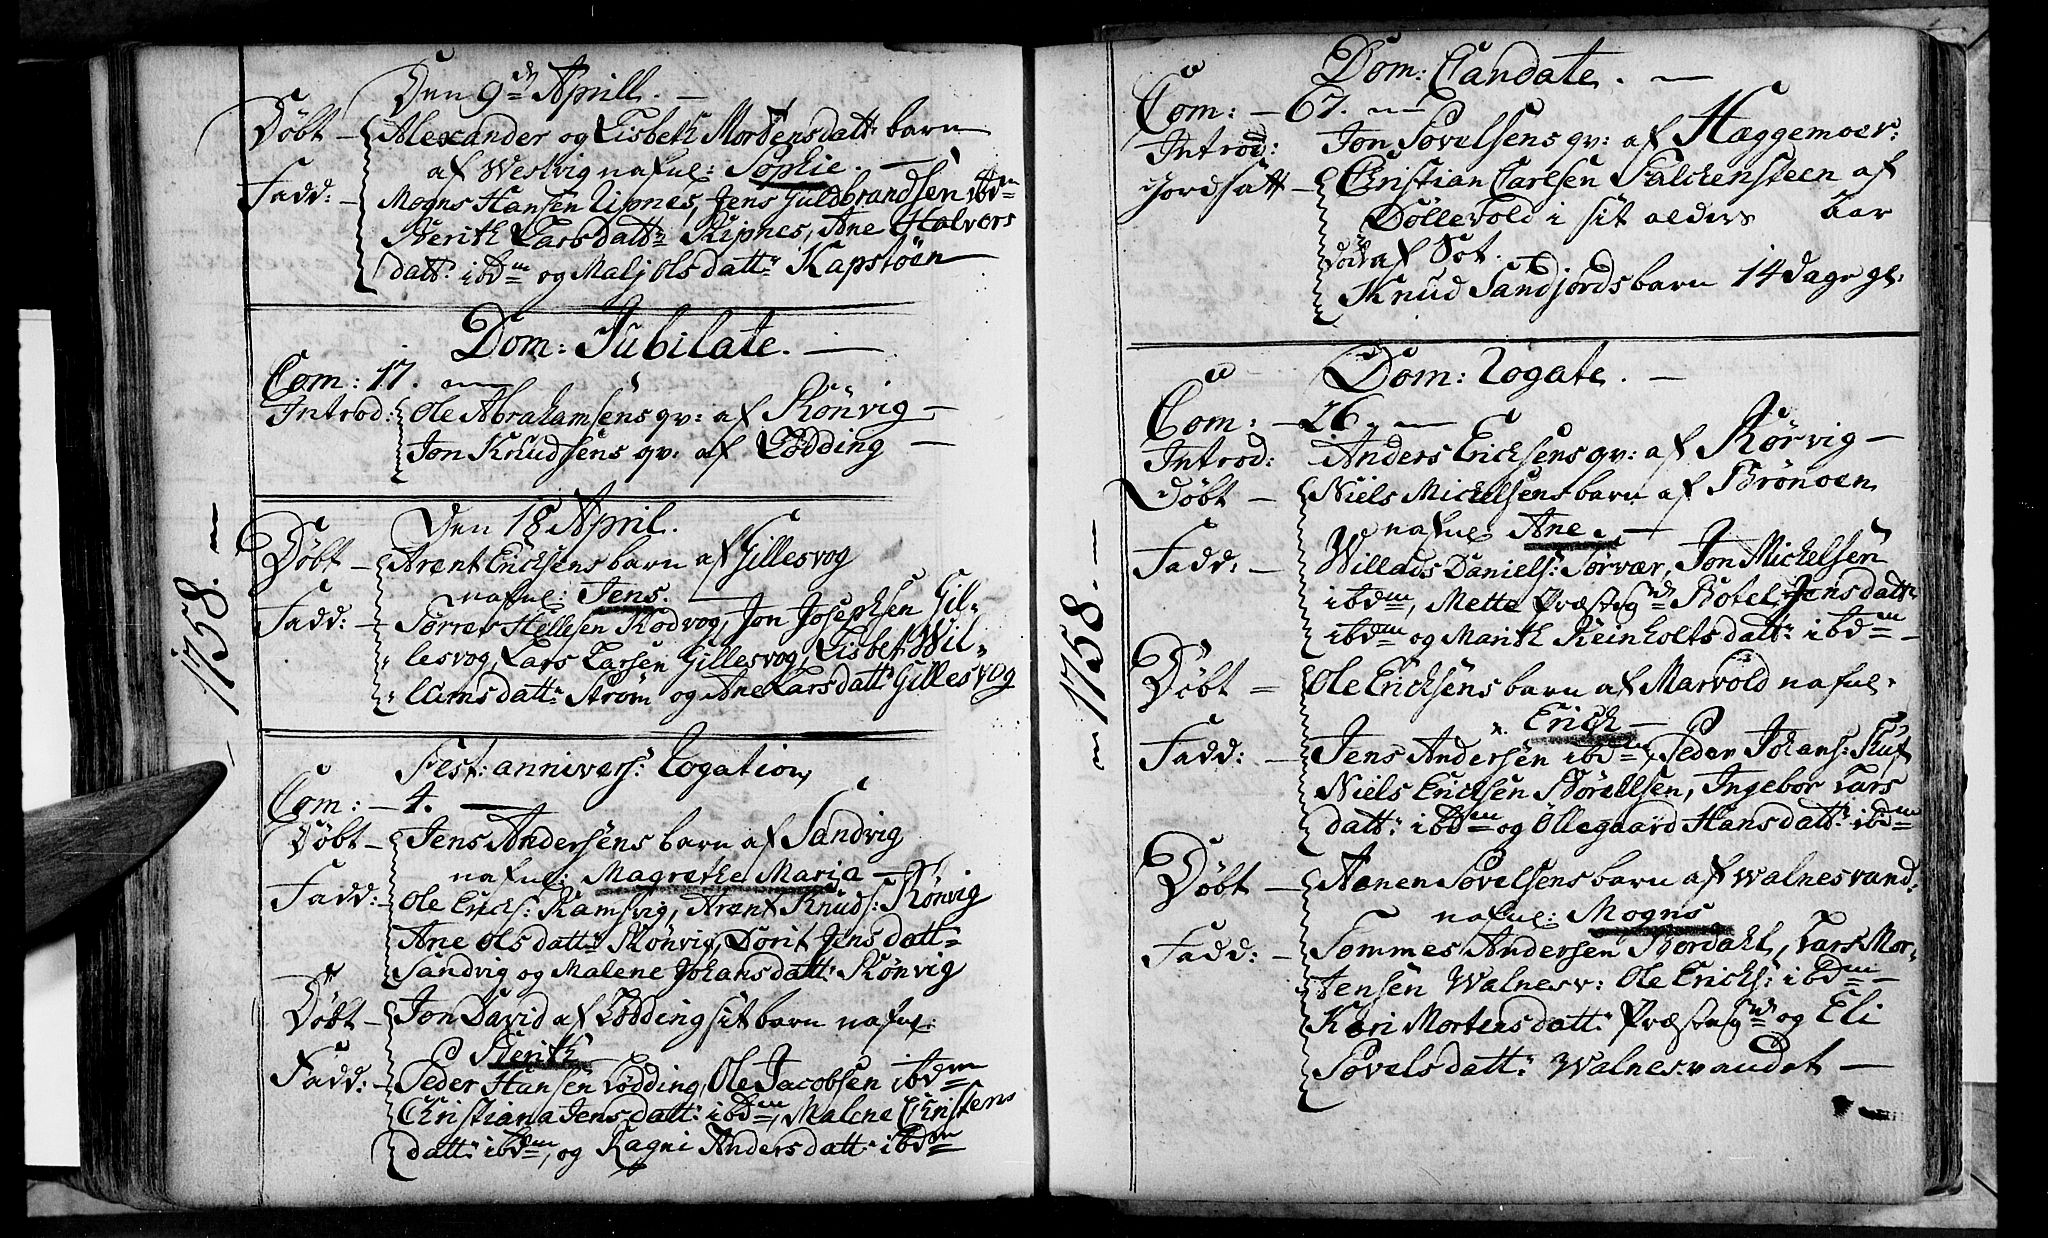 1758.
Den 9de Aprill.
Døbt – Alexander og Lisbeth Mortensdatt: barn
af Westvig nafnl: Sophie.
Fadd: – Mogns Hansen Ripnes, Jens Guldbrandsen ibdm
Berith Larsdattr Ripnes, Ane Halvors
datt: ibdm og Malj Olsdattr Kapstøen
Dom: Jubilate.
Com: 17.
Introd: Ole Abrahamsens qv: af Rønvig
Jon Knudsens qv: af Lødding
Den 18 April.
Døbt – Arent Erichsens barn af Gillesvog
nafnl: Jens.
Fadd: – Hellesen Rodvog, Jon Josephsen Gil-
lesvog, Lars Larsen Gillesvog, Lisbet Wil-
lumsdattr Strøm og Ane Larsdattr Gillesvog
Fest: annivers: Rogation,
Com: – 4.
Døbt – Jens Andersens barn af Sandvig
nafnl: Magrethe Maria
Fadd: – Ole Erichs: Ramsvig, Arent Knuds: Rønvig
Ane Olsdattr Rønvig, Dorit Jensdatt:
Sandvig og Malene Johansdatt: Rønvig
Døbt – Jon David af Lødding sit barn nafnl:
Berith
Fadd: – Peder Hansen Lødding, Ole Jacobsen ibdm
Christiana Jensdatt: ibdm, Malene Christens
datt: ibdm, og Ragni Andersdatt: ibdm
1758.
Dom: Cantate.
Com: – 67.
Introd: Jon Sovelsens qv: af Hæggemoer:
Jordsatt – Christian Carlsen Falchensteen af
Døllevold i sit alders aar
død af Sot.
Knud Sandjords barn 14 dage gl:
Dom: Rogate.
Com: – 26.
Introd: Anders Erichsens qv: af Rørvig
Døbt – Niels Michelsens barn af Brønøen
nafnl Ane.
Fadd: – Willads Daniels: Sørvær, Jon Michelsen
ibdm, Mette Præstegd Botel Jensdattr
ibdm og Marith Reinholtsdattr ibdm
Døbt – Ole Erichsens barn af Marvold nafnl:
Erich
Fadd: – Jens Andersen ibdm, Peder Johans:
Niels Erichsen, Ingebor Lars
datt: ibdm og Ollegaard Hansdattr ibdm
Døbt – Aanen Sovelsens barn af Walnesvand:
nafnl: Mogns
Fadd: – Tommes Andersen, Lars Mor-
tensen Walnesv: Ole Erichs: ibdm
Kari Mortensdattr Præstegd og Eli
Sovelsdattr Walnesvandet